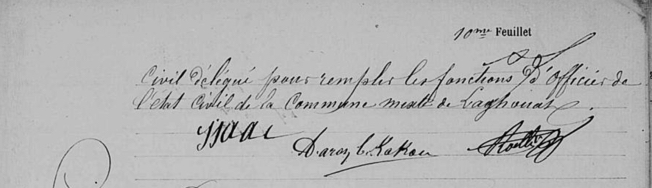 10me Feuillet
Civil délégué pour remplir les fonctions d'Officier de
l'état Civil de la Commune mixte de Laghouat.
Isaac